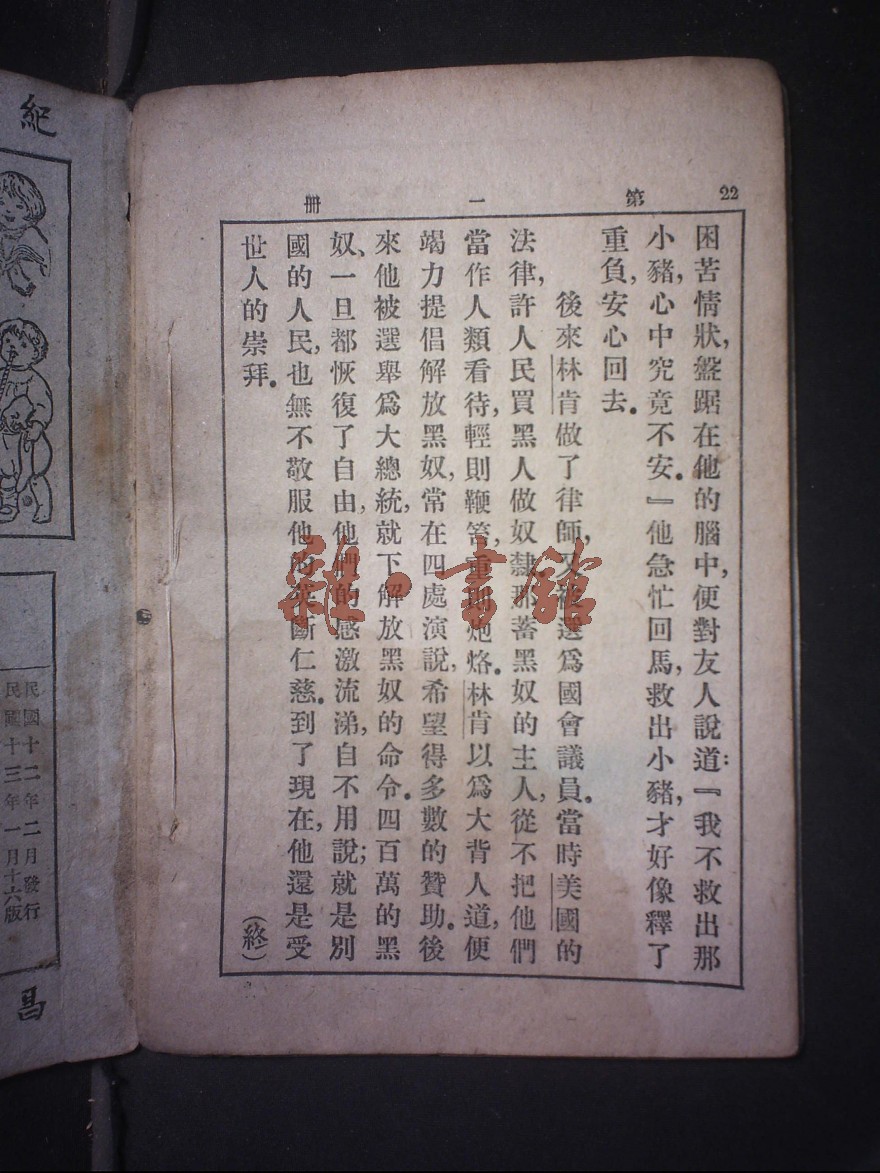 第一冊
22
困苦情狀，盤踞在他的腦中，便對友人說道：『我不救出那
小豬，心中究竟不安。』他急忙回馬，救出小豬，才好像釋了
重負，安心回去。
後來林肯做了律師，又被選爲國會議員。當時美國的
法律，許人民買黑人做奴隸，那蓄黑奴的主人，從不把他們
當作人類看待，輕則鞭笞，重則炮烙。林肯以爲大背人道，便
竭力提倡解放黑奴，常在四處演說，希望得多數的贊助。後
來他被選舉爲大總統，就下解放黑奴的命令。四百萬的黑
奴、一旦都恢復了自由，他們的感激流涕，自不用說；就是別
國的人民，也無不敬服他的英斷仁慈。到了現在，他還是受
世人的崇拜。
(終)
雜·書館
紀
民國十二年二月發行
民國十三年一月十六版
昌